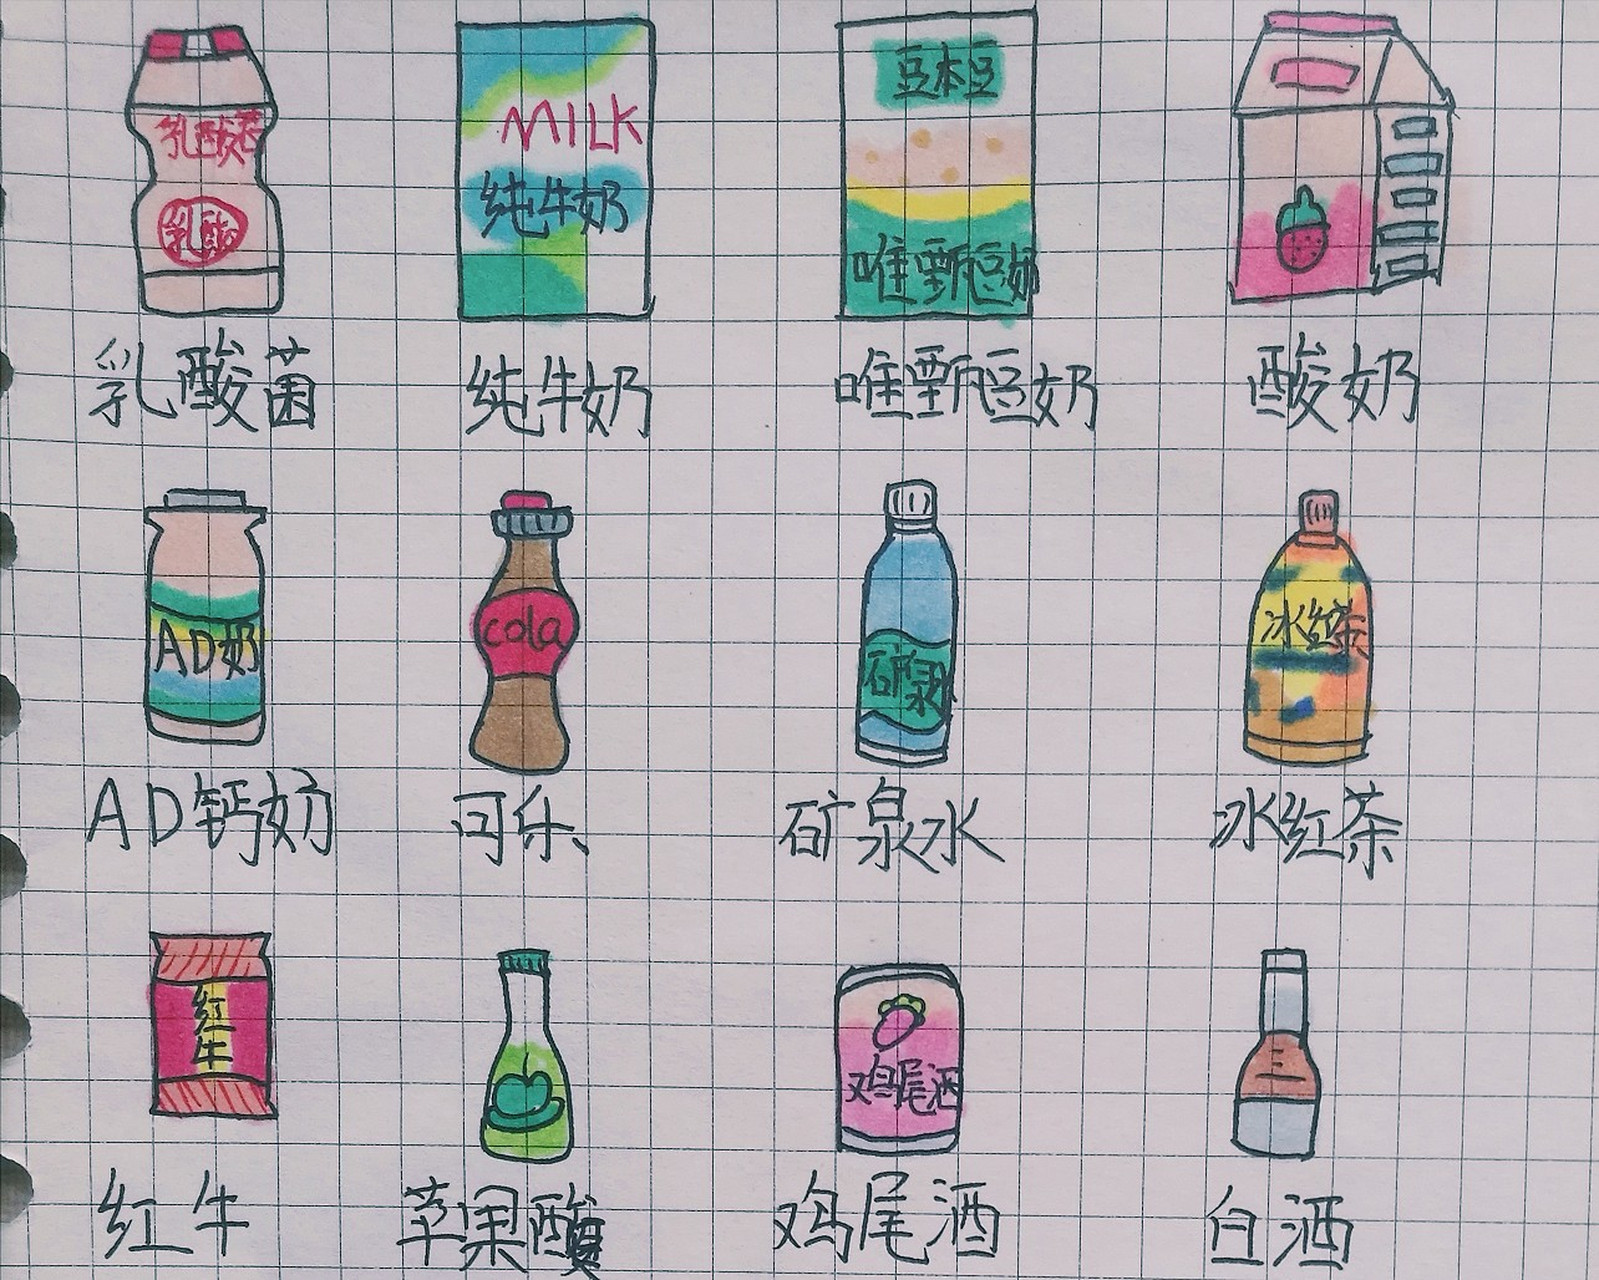 乳酸菌
乳酸
MILK
纯牛奶
豆本豆
唯甄豆奶
乳酸菌
纯牛奶
唯甄豆奶
酸奶
AD奶
cola
矿泉水
冰红茶
AD钙奶
可乐
矿泉水
冰红茶
红
牛
鸡尾酒
红牛
苹果醋
鸡尾酒
白酒